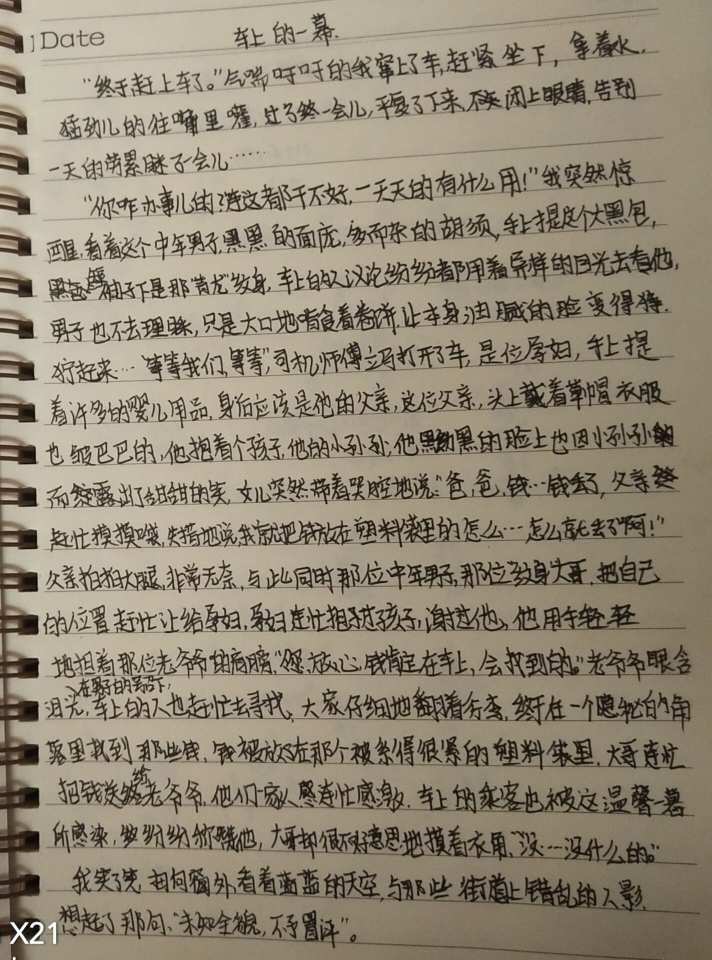 Date
车上的一幕.
"终于赶上车了。"气喘吁吁的我窜上了车,赶紧坐下,拿着水,
猛劲儿的往嘴里灌,过了一会儿,平复了下来,闭上眼睛,告别
一天的劳累眯了会儿……
"你咋办事儿的?连这都干不好,一天天的有什么用!"我突然惊
醒,看着这个中年男子,黑黑的面庞,多而杂的胡须,手上提这个大黑包,
黑色袖子下是那"青龙"纹身,车上的人议论纷纷都用着异样的目光去看他,
男子也不去理睬,只是大口地啃食着卷饼,让本身油腻的脸变得狰
狞起来…"等等我们,等等",司机师傅立马打开了车,是位孕妇,手上提
着许多的婴儿用品,身后应该是他的父亲,这位父亲,头上戴着草帽衣服
也皱巴巴的,他抱着个孩子,他的小孙孙,他黝黑的脸上也因小孙孙
而露出了甜甜的笑,女儿突然带着哭腔地说:"爸,爸,钱…钱丢了,父亲
赶忙摸摸,失措地说我就把钱放在塑料袋里的怎么…怎么就丢了啊!"
父亲拍拍大腿,非常无奈,与此同时那位中年男子,那位纹身大哥,把自己
的位置赶忙让给孕妇,孕妇连忙抱过孩子,谢过他,他用手轻轻
地担着那位老爷爷的肩膀,"您放心,钱肯定在车上,会找到的。"老爷爷眼含
泪光,在大哥的号召下,车上的人也赶忙去寻找,大家仔细地翻着行李,终于在一个隐秘的角
落里找到那些钱,钱被放在那个被系得很紧的塑料袋里,大哥连忙
把钱送给老爷爷,他们一家人连忙感激,车上的乘客也被这温馨一幕
所感染,纷纷称赞他,大哥却很不好意思地摸着衣角,"没…没什么的。"
我笑了笑,扭向窗外看着蓝蓝的天空,与那些街道上错乱的人影,
想起了那句:"未知全貌,不予置评"。
X21